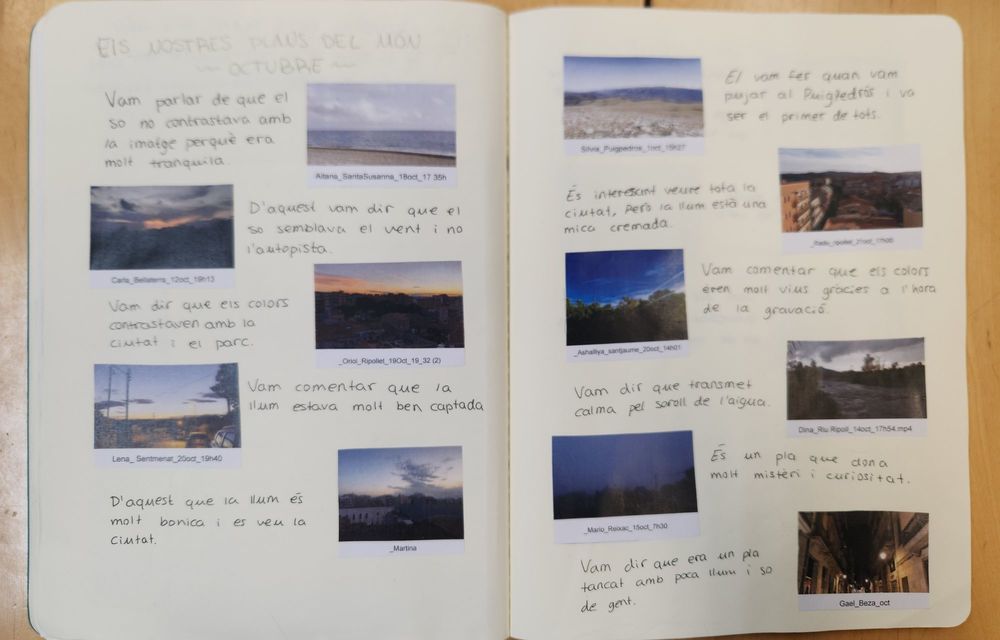 ElS NOSTRES PLANS DEL MÓN
~ OCTUBRE ~
Vam parlar de que el
so no contrastava amb
la imatge perquè era
molt tranquila.
Aitana_SantaSusanna_18oct_17 35h
Carla_Bellaterra_12oct_19h13
D'aquest vam dir que el
so semblava el vent i no
l'autopista.
Vam dir que els colors
contrastaven amb la
ciutat i el parc.
_Oriol_Ripollet_19Oct_19_32 (2)
Lena_ Sentmenat_25oct_19h40
Vam comentar que la
llum estava molt ben captada
D'aquest que la llum és
molt bonica i es veu la
ciutat.
_Martina
Silvia_Puigpedros_1oct_15h27
El vam fer quan vam
pujar al Puigpedrós i va
ser el primer de tots.
És interesant veure tota la
ciutat, Però la llum està una
mica cremada.
_ripollet_21oct_17h00
_Ashalliya_santjaume_20oct_14h01
Vam comentar que els colors
eren molt vius gràcies a l'hora
de la gravació.
Vam dir que transmet
calma pel soroll de l'aigua.
Dina_Riu Ripoll_14oct_17h54.mp4
_Mario_Reixac_15oct_7h30
És un pla que dona
molt misteri i curiositat.
Vam dir que era un pla
tancat amb poca llum i so
de gent.
Gael_Beza_oct